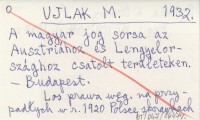 UJLAK M. 1932.
A magyar jog sorsa az
Ausztriához és Lengyelor-
szághoz csatolt területeken.
— Budapest.
Los prawa węg. na przy-
padłych w r. 1920 Polsce